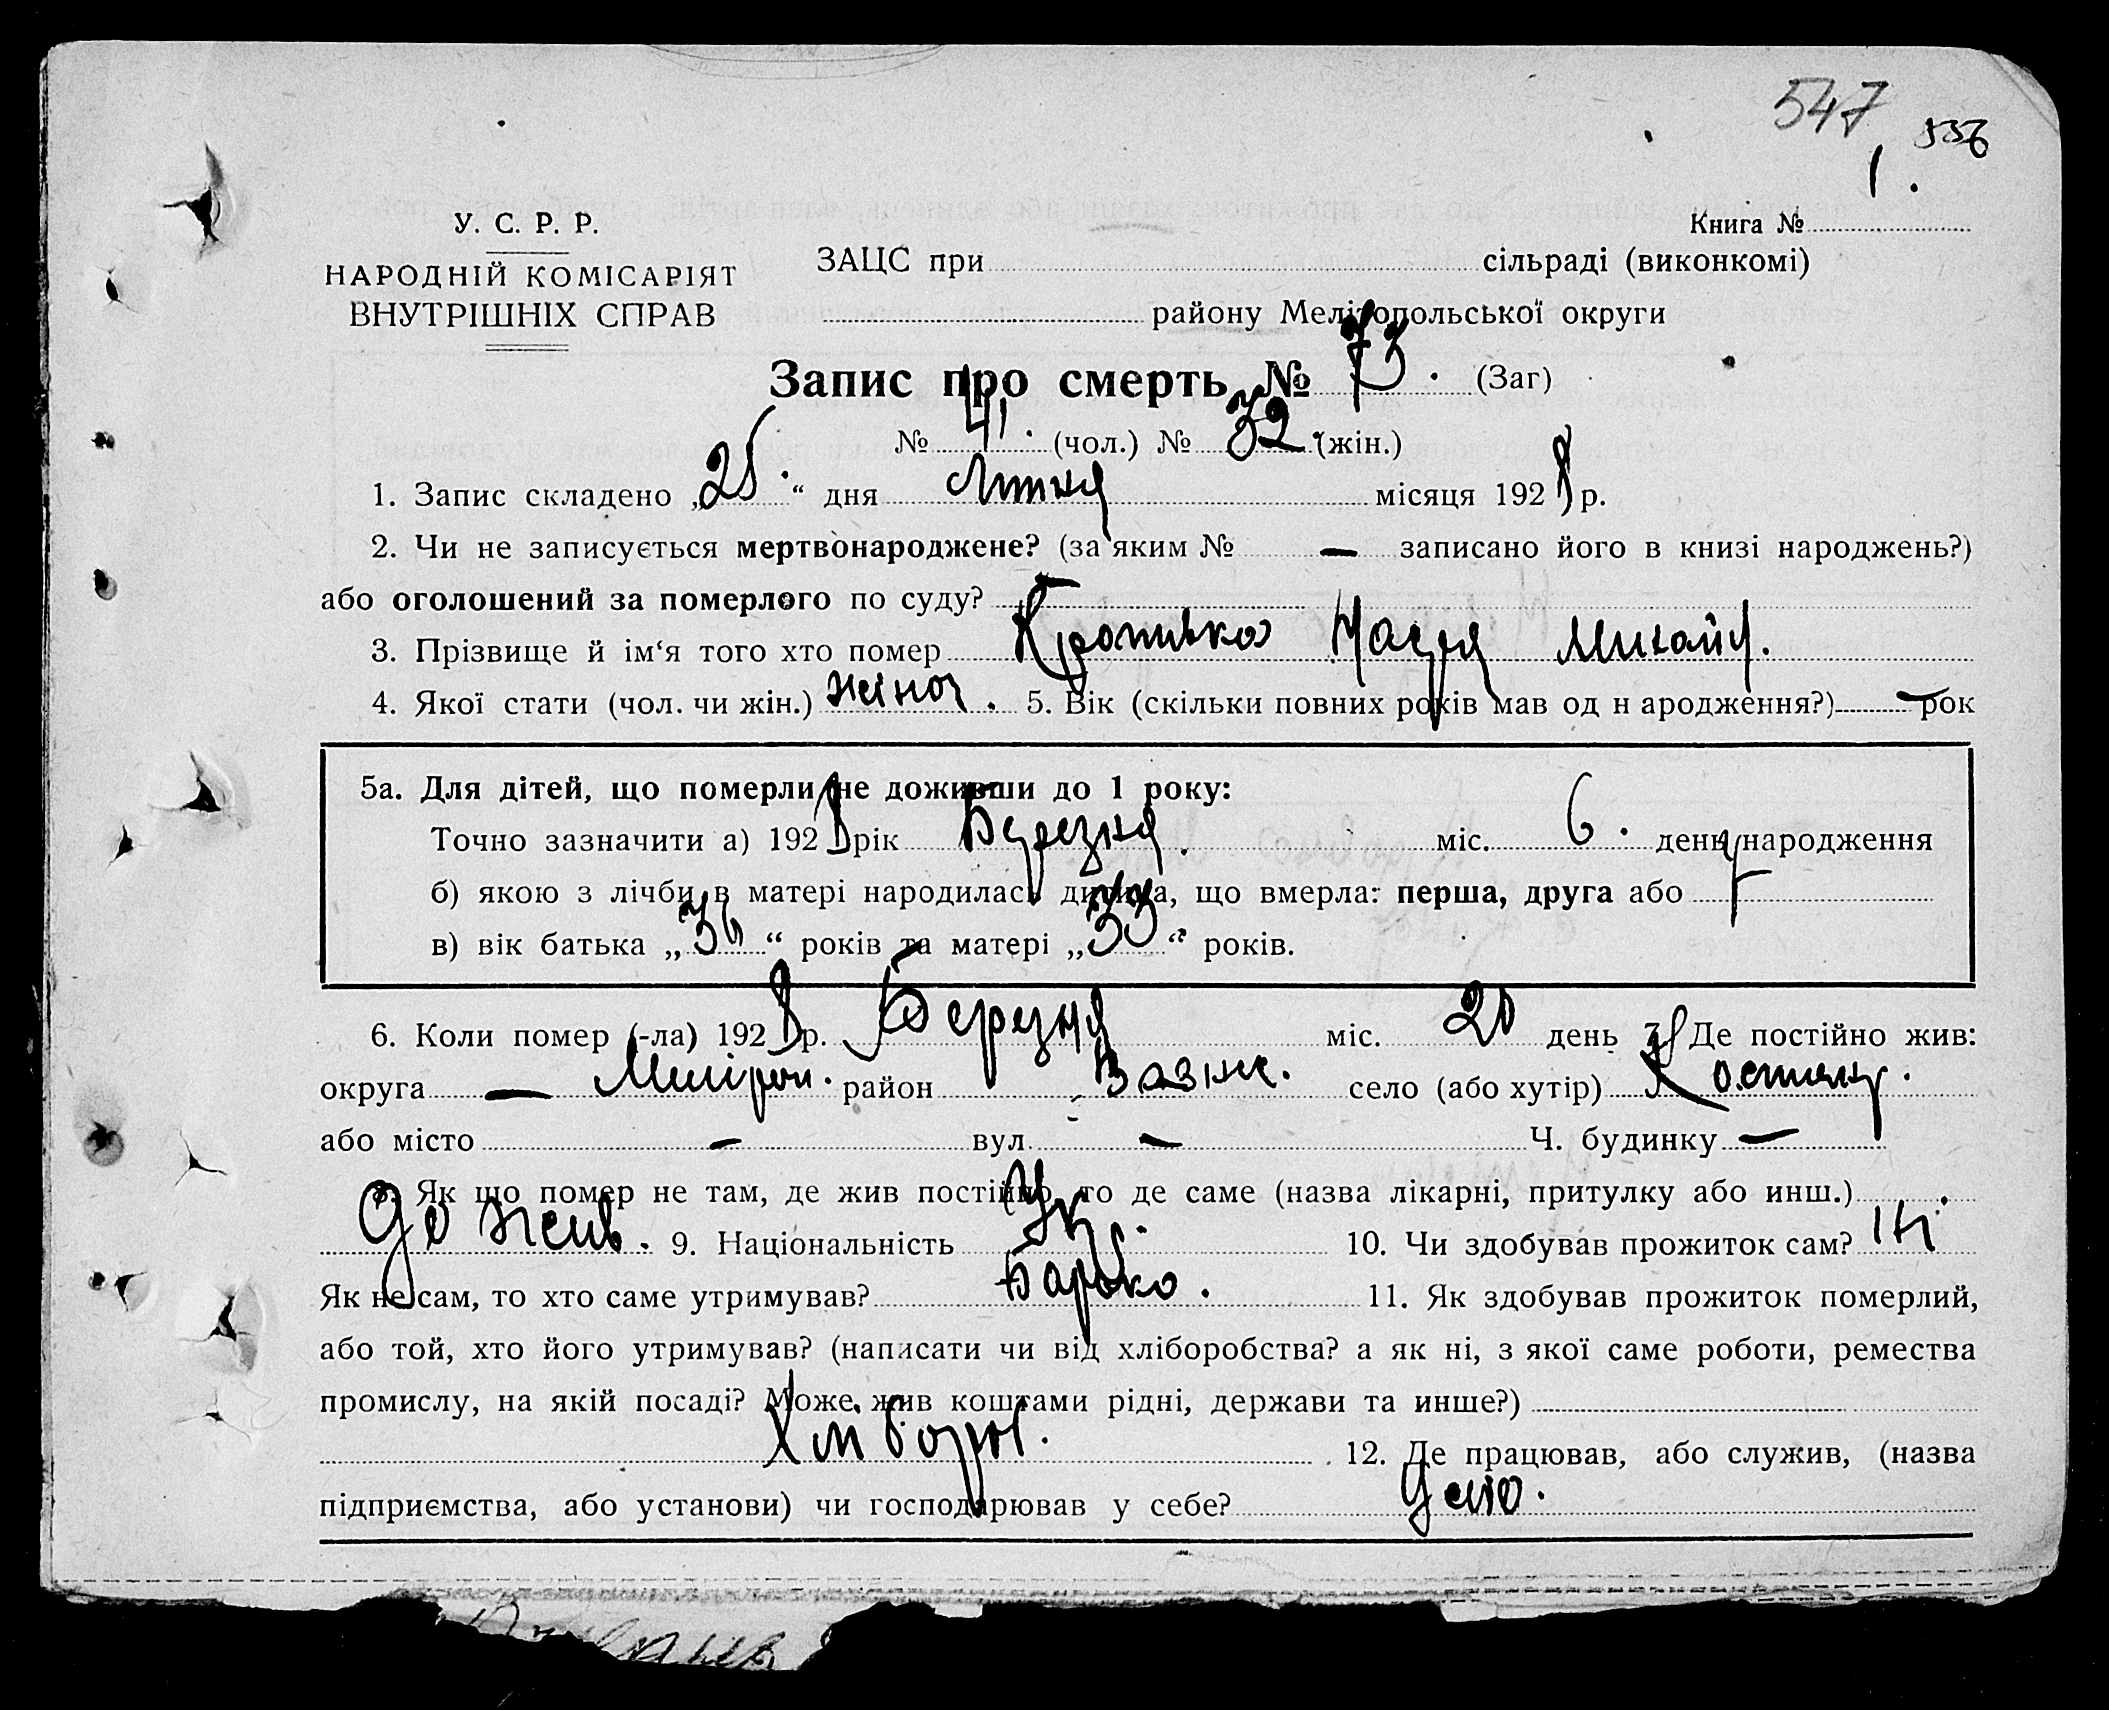 547
536
1.
У. С. Р. Р.
НАРОДНІЙ КОМІСАРІЯТ
ВНУТРІШНІХ СПРАВ
Книга №
ЗАЦС при сільраді (виконкомі)
району Мелітопольської округи
Запис про смерть № 73. (Заг)
№ 41. (чол.) № 32. (жін.)
1. Запис складено „25." дня Липня місяця 1928 р.
2. Чи не записується мертвонароджене? (за яким № — записано його в книзі народжень?)
або оголошений за померлого по суду? —
3. Прізвище й ім'я того хто помер Кропивко Надія Михайл.
4. Якої стати (чол. чи жін.) жіноч. 5. Вік (скільки повних років мав од н ародження?) — рок
5а. Для дітей, що померли не доживши до 1 року:
Точно зазначити а) 1928 рік Березня. міс. 6. день народження
б) якою з лічби в матері народилась дитина, що вмерла: перша, друга або 7
в) вік батька „36" років та матері „33" років.
6. Коли помер (-ла) 1928 р. Березня міс. 20 день 7. Де постійно жив:
округа — Меліпол. район село (або хутір)
або місто — вул. — Ч. будинку —
8. Як що помер не там, де жив постійно, то де саме (назва лікарні, притулку або инш.)
де жив. 9. Національність Укр. 10. Чи здобував прожиток сам? ні
Як не сам, то хто саме утримував? Батько. 11. Як здобував прожиток померлий,
або той, хто його утримував? (написати чи від хліборобства? а як ні, з якої саме роботи, ремества
промислу, на якій посаді? Може, жив коштами рідні, держави та инше?)
Хлібороб. 12. Де працював, або служив, (назва
підприємства, або установи) чи господарював у себе? У себе.